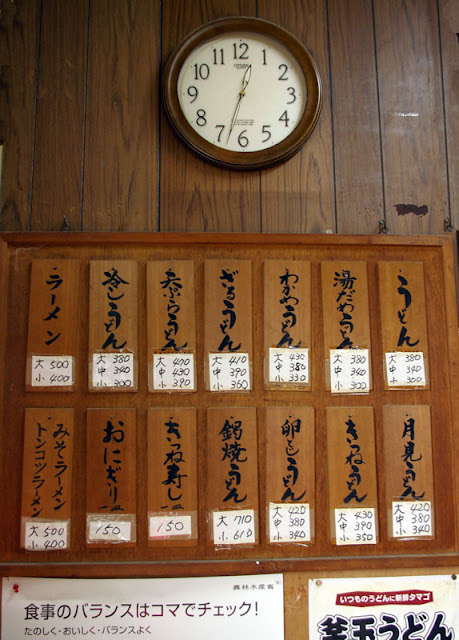 12
1
2
3
4
5
6
7
8
9
10
11
CITIZEN
うどん
大 380
中 340
小 300
湯だめうどん
大 380
中 340
小 300
わかめうどん
大 430
中 380
小 330
ざるうどん
大 410
中 390
小 360
天ぷらうどん
大 470
中 430
小 390
冷しうどん
大 380
中 340
小 300
ラーメン
大 500
小 400
月見うどん
大 420
中 380
小 340
きつねうどん
大 430
中 390
小 350
卵とじうどん
大 420
中 380
小 340
鍋焼うどん
大 710
小 610
きつね寿し
150
おにぎり
150
みそラーメン
トンコツラーメン
大 500
小 400
農林水産省
食事のバランスはコマでチェック!
たのしく・おいしく・バランスよく
いつものうどんに新鮮タマゴ
釜玉うどん